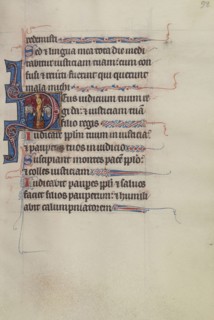 redemisti.
Sed et lingua mea tota die medi
tabitur iusticiam tuam: cum con
fusi et reueriti fuerint qui querunt
mala michi.
Deus iudicium tuum re
gi da: et iusticiam tuā
filio regis
Iudicare pplm tuum in iusticia:
et paupes tuos in iudicio
Suscipiant montes pacē pplo:
et colles iusticiam
Iudicabit paupes ppli et saluos
faciet filios pauperum: et humili
abit calumpniatorem